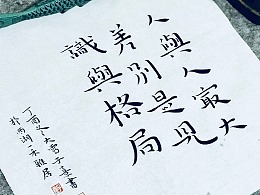 人與人最大
差別是見
識與格局
丁酉冬大雪子喜書
於西湖一禾雅居